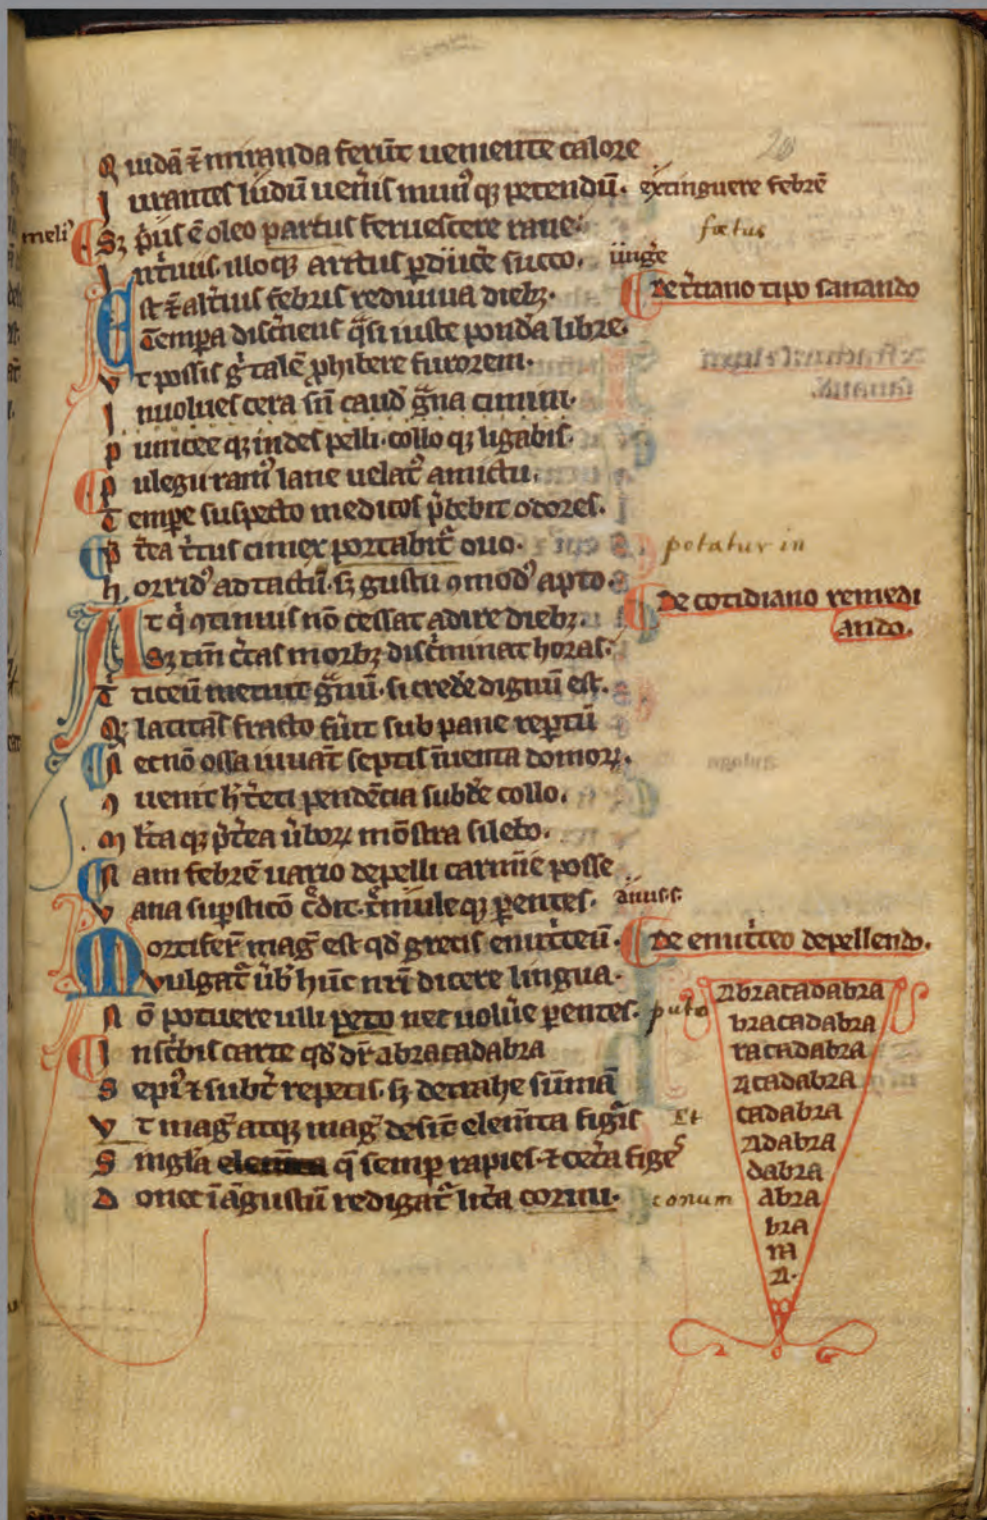 Quidā ⁊ miranda ferūt uemente calore
Iurantes ludū uen̄is munꝰ qꝫ petendū. extinguere febrē
20
meliꝰ Sꝫ pͥus ē oleo partus feruescere rane.
fœtus
In tͥuiis. illoqꝫ artus ꝑdūce succo. ūnge
Est ⁊ altͥius febris rediuiua diebꝫ.
De tͨiano tipo sanando
Tempa discͥiens qͣsi iuste pondͣa libre.
Vt possis gͦ talē ꝓhibere furorem.
Inuolues cera
gͣna cimini.
Puniceeqꝫ indes pelli. colloqꝫ ligabis.
Pulegii ramꝰ lane uelatꝰ amictu.
Tempe suspecto medicos p̄bebit odores.
Pͬtea tritus cimex portabitͬ ouo.
potatur in
Horridꝰ ad tactū. sꝫ gustu ꝯmodꝰ apto.
De cotidiano remedi
ando.
At qͥ ꝯtinuis nō cessat adire diebꝫ.
Sꝫ tm̄ certas morbꝫ discͥminat horas.
Triticeū
gͣnū. si credͤe dignū est.
Qꝫ latitās fracto fūit sub pane reptū
Necnō ossa iuuāt septis īuenta domoꝝ.
Inuenit
pendētia subdͤe collo.
Mltͣa qꝫ p̄tea ūboꝝ mōstra silebo.
Nam febrē uario depelli carmīe posse
Vana suꝑsticō cͤdit. tͤmuleqꝫ ꝑentes. anus. s.
Mortiferꝰ magꝭ est qd̄ grecis emitͥteū.
De emitͥteo depellendo.
Vulgatꝰ ūb̄ hūc nr̄i dicere lingua.
Nō potuere ulli peto nec uolūe ꝑentes. puto
Inscͥbis carte qd̄ dr̄ abracadabra
Sepiꝰ ⁊ subtͤ repetis. sꝫ detrahe sūmā
Vt magꝭ atqꝫ magꝭ desīt elem̄ta figͥis
Et
Singlͣa qͤ semꝑ rapies. ⁊ cetͤa figes
Donec ī āgustū redigatꝰ litͤa cornu.
conum
Abracadabra
bracadabra
racadabra
acadabra
cadabra
adabra
dabra
abra
bra
ra
a.